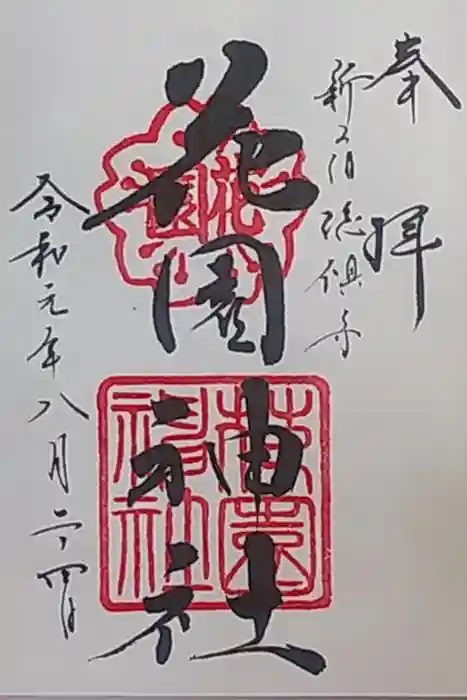 奉拝
新宿総鎮守
花園神社
花園
花園神社
令和元年八月二十四日